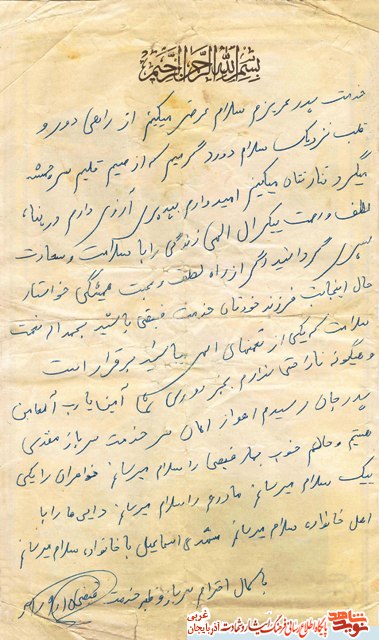 بسم الله الرحمن الرحیم
خدمت پدر عزیزم سلام عرض میکنم از راهی دور و
قلب نزدیک سلام و درود گرمیم که از صمیم قلبم سرچشمه
میگیرد نثارتان میکنم امیدوارم آرزی دارم در پناه
لطف و رحمت الهی زندگی را با سلامت و سعادت
سپری گردانید اگر از راه لطف و محبت همیشگی خواستار
حال اینجانب فرزند خودتان باشید بحمداله نعمت
سلامت که یکی از نعمتهای الهی میباشد برقرار است
و هیگونه ناراحتی ندارم بجز دوری شما آمین یا رب العالمین
پدر جان رسیدم اهواز الان سر خدمت سرباز مقدسی
هستم و حالم خوب سلام میرسانم خواهران را یکی
یک سلام میرسانم مادرم را سلام میرسانم دایی ها را با
اهل خانواده سلام میرسانم مشهدی اسماعیل با خانواده سلام میرسانم
با کمال احترام سرباز وظیفه
نوید شاهد
پایگاه اطلاع رسانی فرهنگ ایثار و شهادت آذربایجان غربی